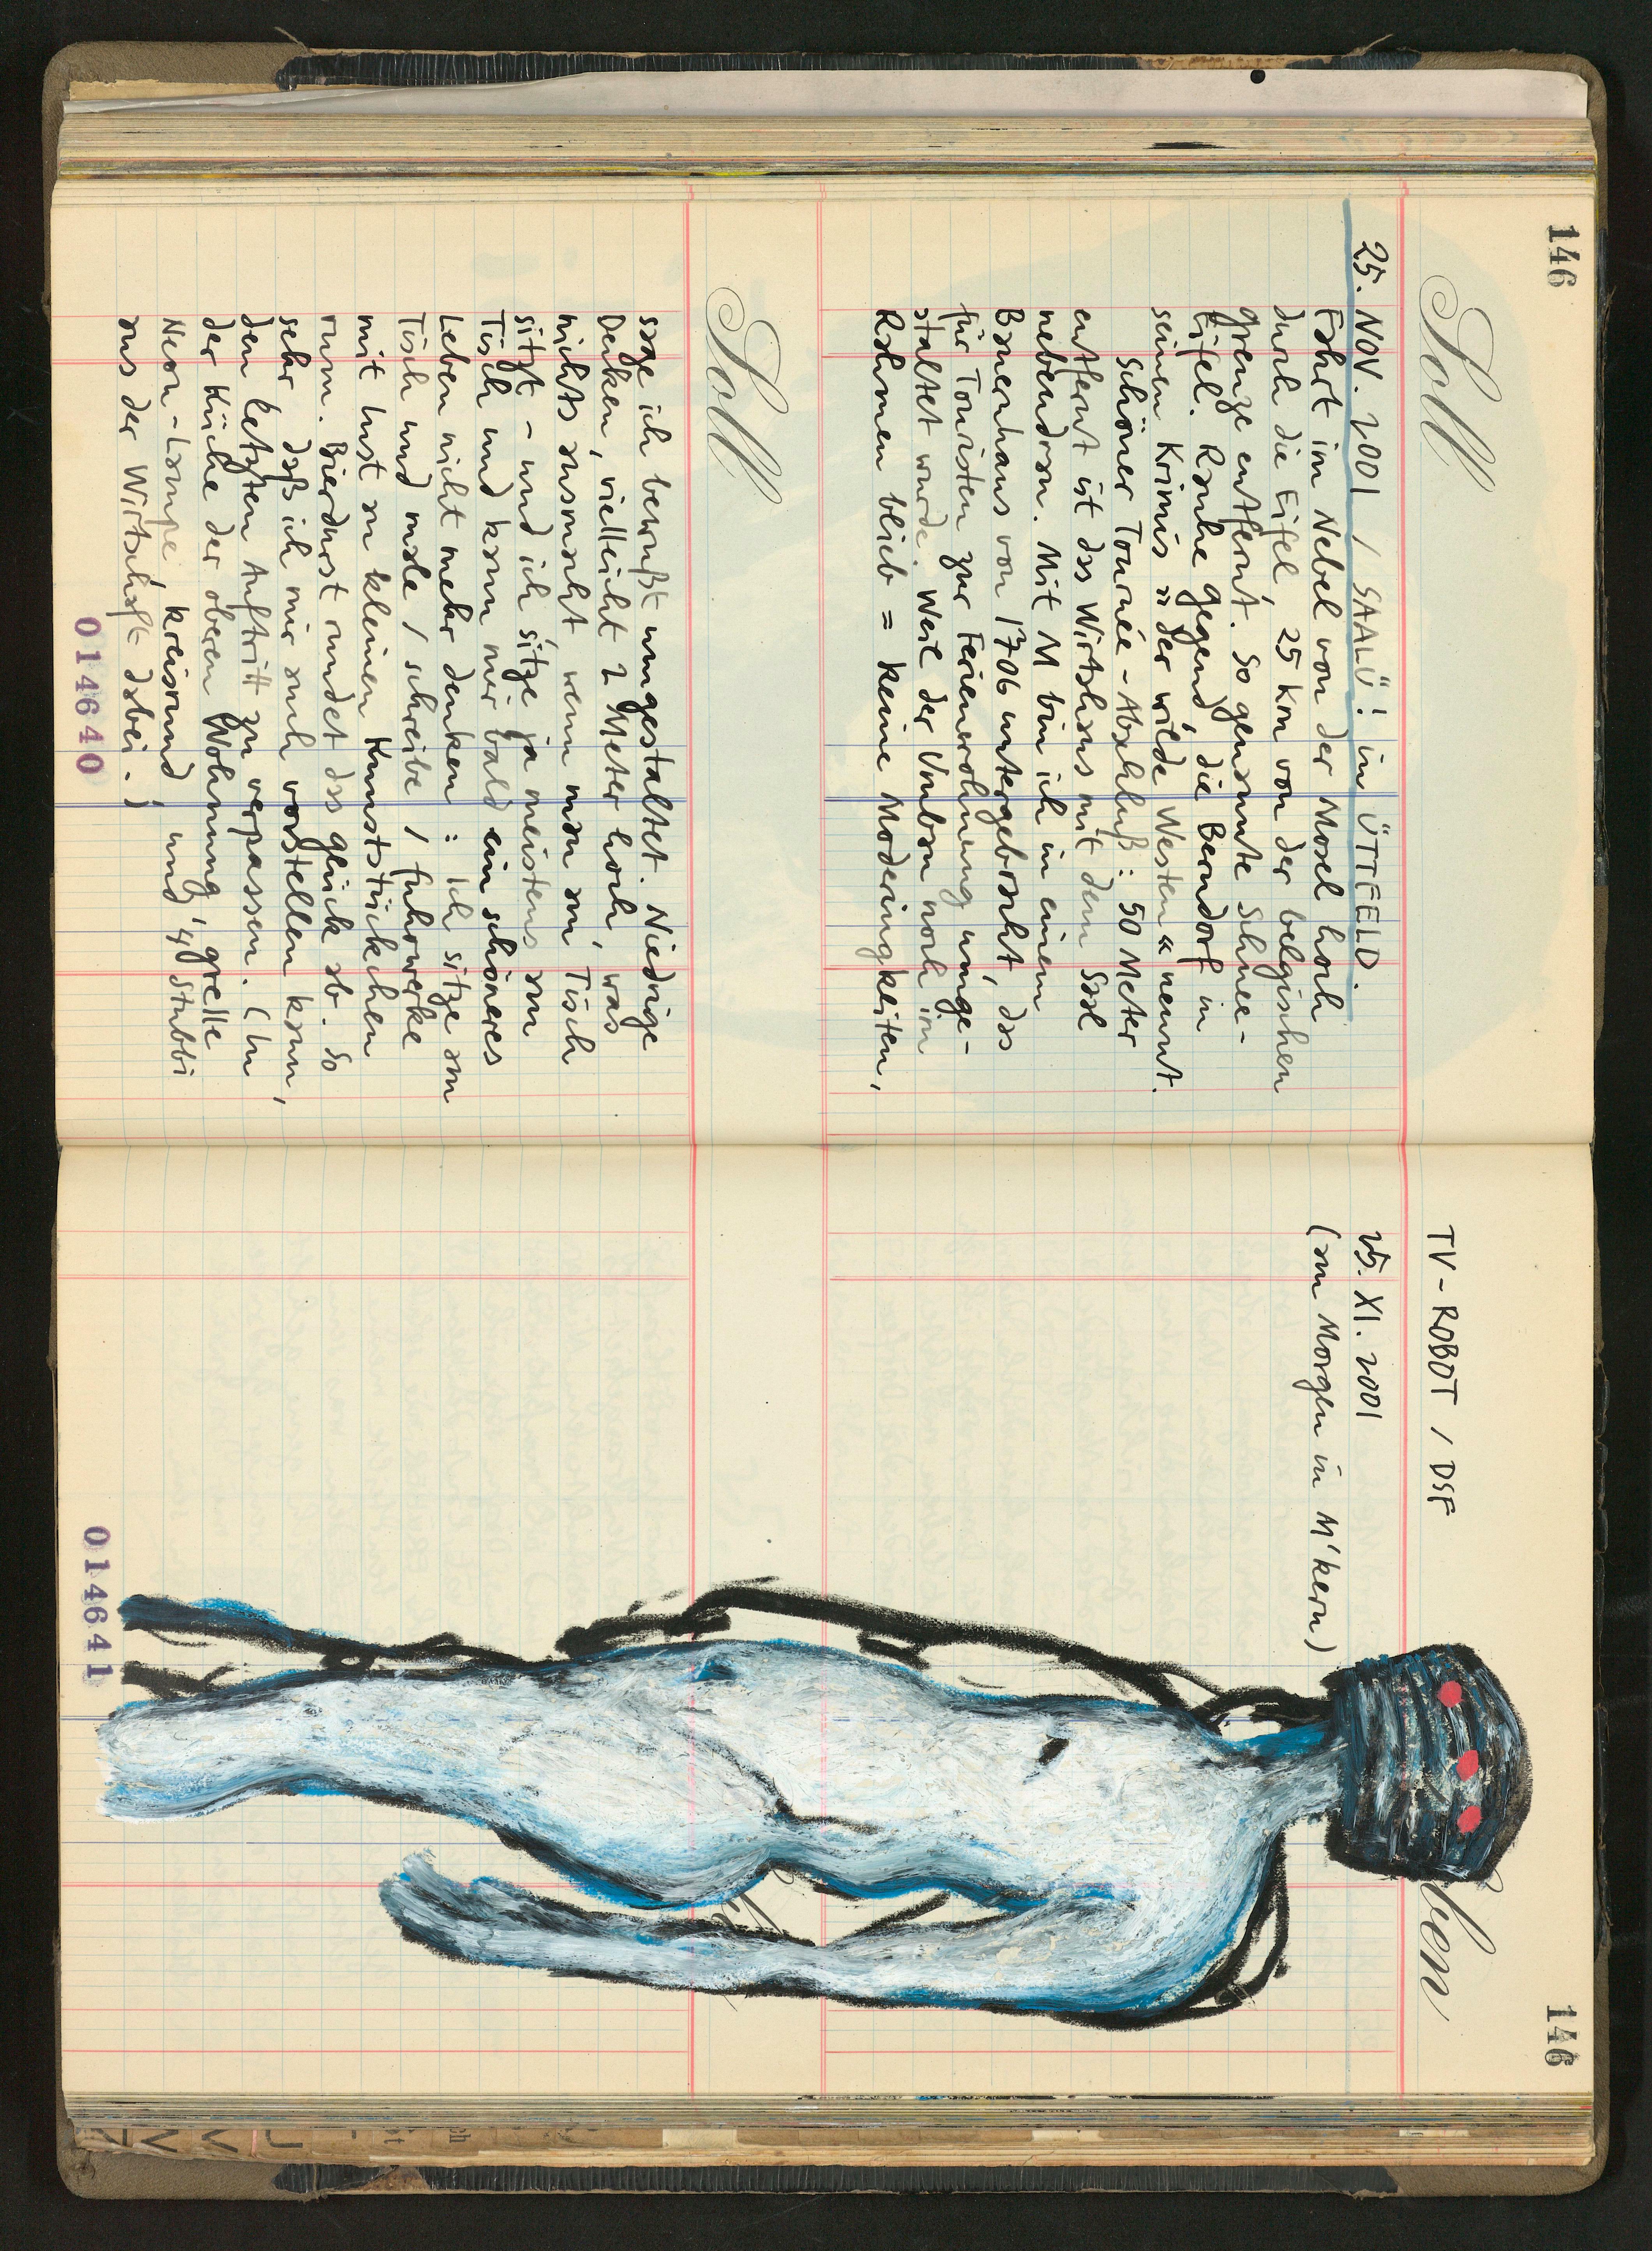 146
Soll
25. NOV. 2001 / SAALÜ! in ÜTTFELD.
Fahrt im Nebel von der Mosel hoch
durch die Eifel, 25 km von der belgischen
grenze entfernt. So genannte Schnee-
Eifel. Rauhe gegend, die Berndorf in
seinen Krimis "der wilde Westen" nennt.
Schöner Tournée-Abschluß: 50 Meter
entfernt ist das Wirtshaus mit dem Saal
nebendran. Mit M bin ich in einem
Bauernhaus von 1706 untergebracht, das
für Touristen zur Ferienwohnung umge-
staltet wurde. Weil der Umbau noch im
Rahmen blieb = keine Moderingkeiten,
Soll
sage ich bewußt umgestaltet. Niedrige
Decken, vielleicht 2 Meter hoch, was
nichts ausmacht wenn man am Tisch
sitzt - und ich sitze ja meistens am
Tisch und kann mir bald ein schöneres
Leben nicht mehr denken: Ich sitze am
Tisch und male / schreibe / fuhrwerke
mit Lust an kleinen Kunststückchen
rum. Bierdurst rundet das glück ab. So
sehr daß ich mir auch vorstellen kann,
den letzten Auftritt zu verpassen. (In
der Küche der oberen Wohnung grelle
Neon-Lampe, kreisrund, und 4 Stubbi
aus der Wirtschaft dabei.)
014640
146
TV-ROBOT / DSF
25. XI. 2001
(am Morgen in M'kern)
ben
014641